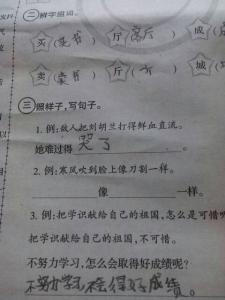 二 辨字组词。
买(买书) 斤( 斤) 成(
卖(卖书) 斤( ) 城(
三 照样子,写句子。
1. 例:敌人把刘胡兰打得鲜血直流。
她难过得 哭了 。
2. 例:寒风吹到脸上像刀割一样。
像 一样。
3. 把学识献给自己的祖国,怎么是可惜
把学识献给自己的祖国,不可惜。
不努力学习,怎么会取得好成绩呢?
不努力学习不会得好成绩。